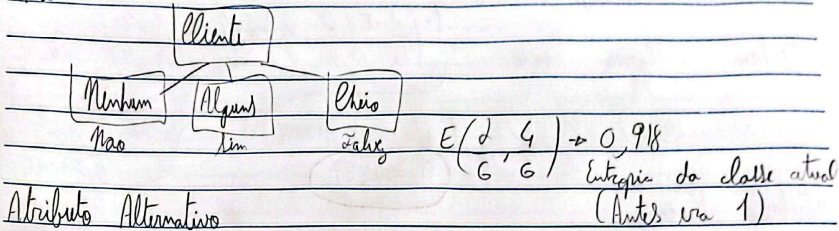 Cliente
Nenhum Alguns Cheio
Não Sim Talvez
E(2/6, 4/6) → 0,918
Entropia da classe atual
(Antes era 1)
Atributo Alternativo